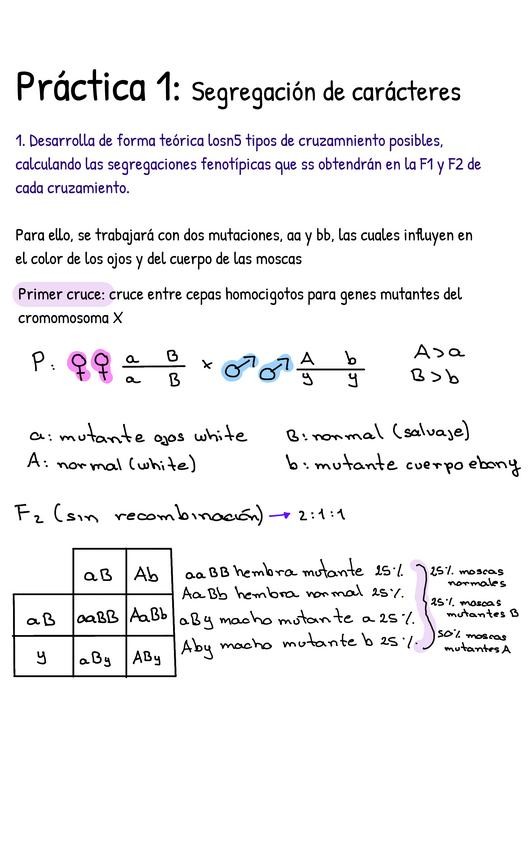 Práctica 1: Segregación de carácteres
1. Desarrolla de forma teórica losn5 tipos de cruzamniento posibles,
calculando las segregaciones fenotípicas que ss obtendrán en la F1 y F2 de
cada cruzamiento.
Para ello, se trabajará con dos mutaciones, aa y bb, las cuales influyen en
el color de los ojos y del cuerpo de las moscas
Primer cruce: cruce entre cepas homocigotos para genes mutantes del
cromomosoma X
P: ♀♀ a B × ♂♂ A b A>a
a B y y B>b
a: mutante ojos white B: normal (salvaje)
A: normal (white) b: mutante cuerpo ebony
F2 (sin recombinación) → 2:1:1
aB Ab
aB aaBB AaBb
y aBy ABy
aaBB hembra mutante 25%.
AaBb hembra normal 25%.
aBy macho mutante a 25%.
Aby macho mutante b 25%.
25% moscas
normales
25% moscas
mutantes B
50% moscas
mutantes A